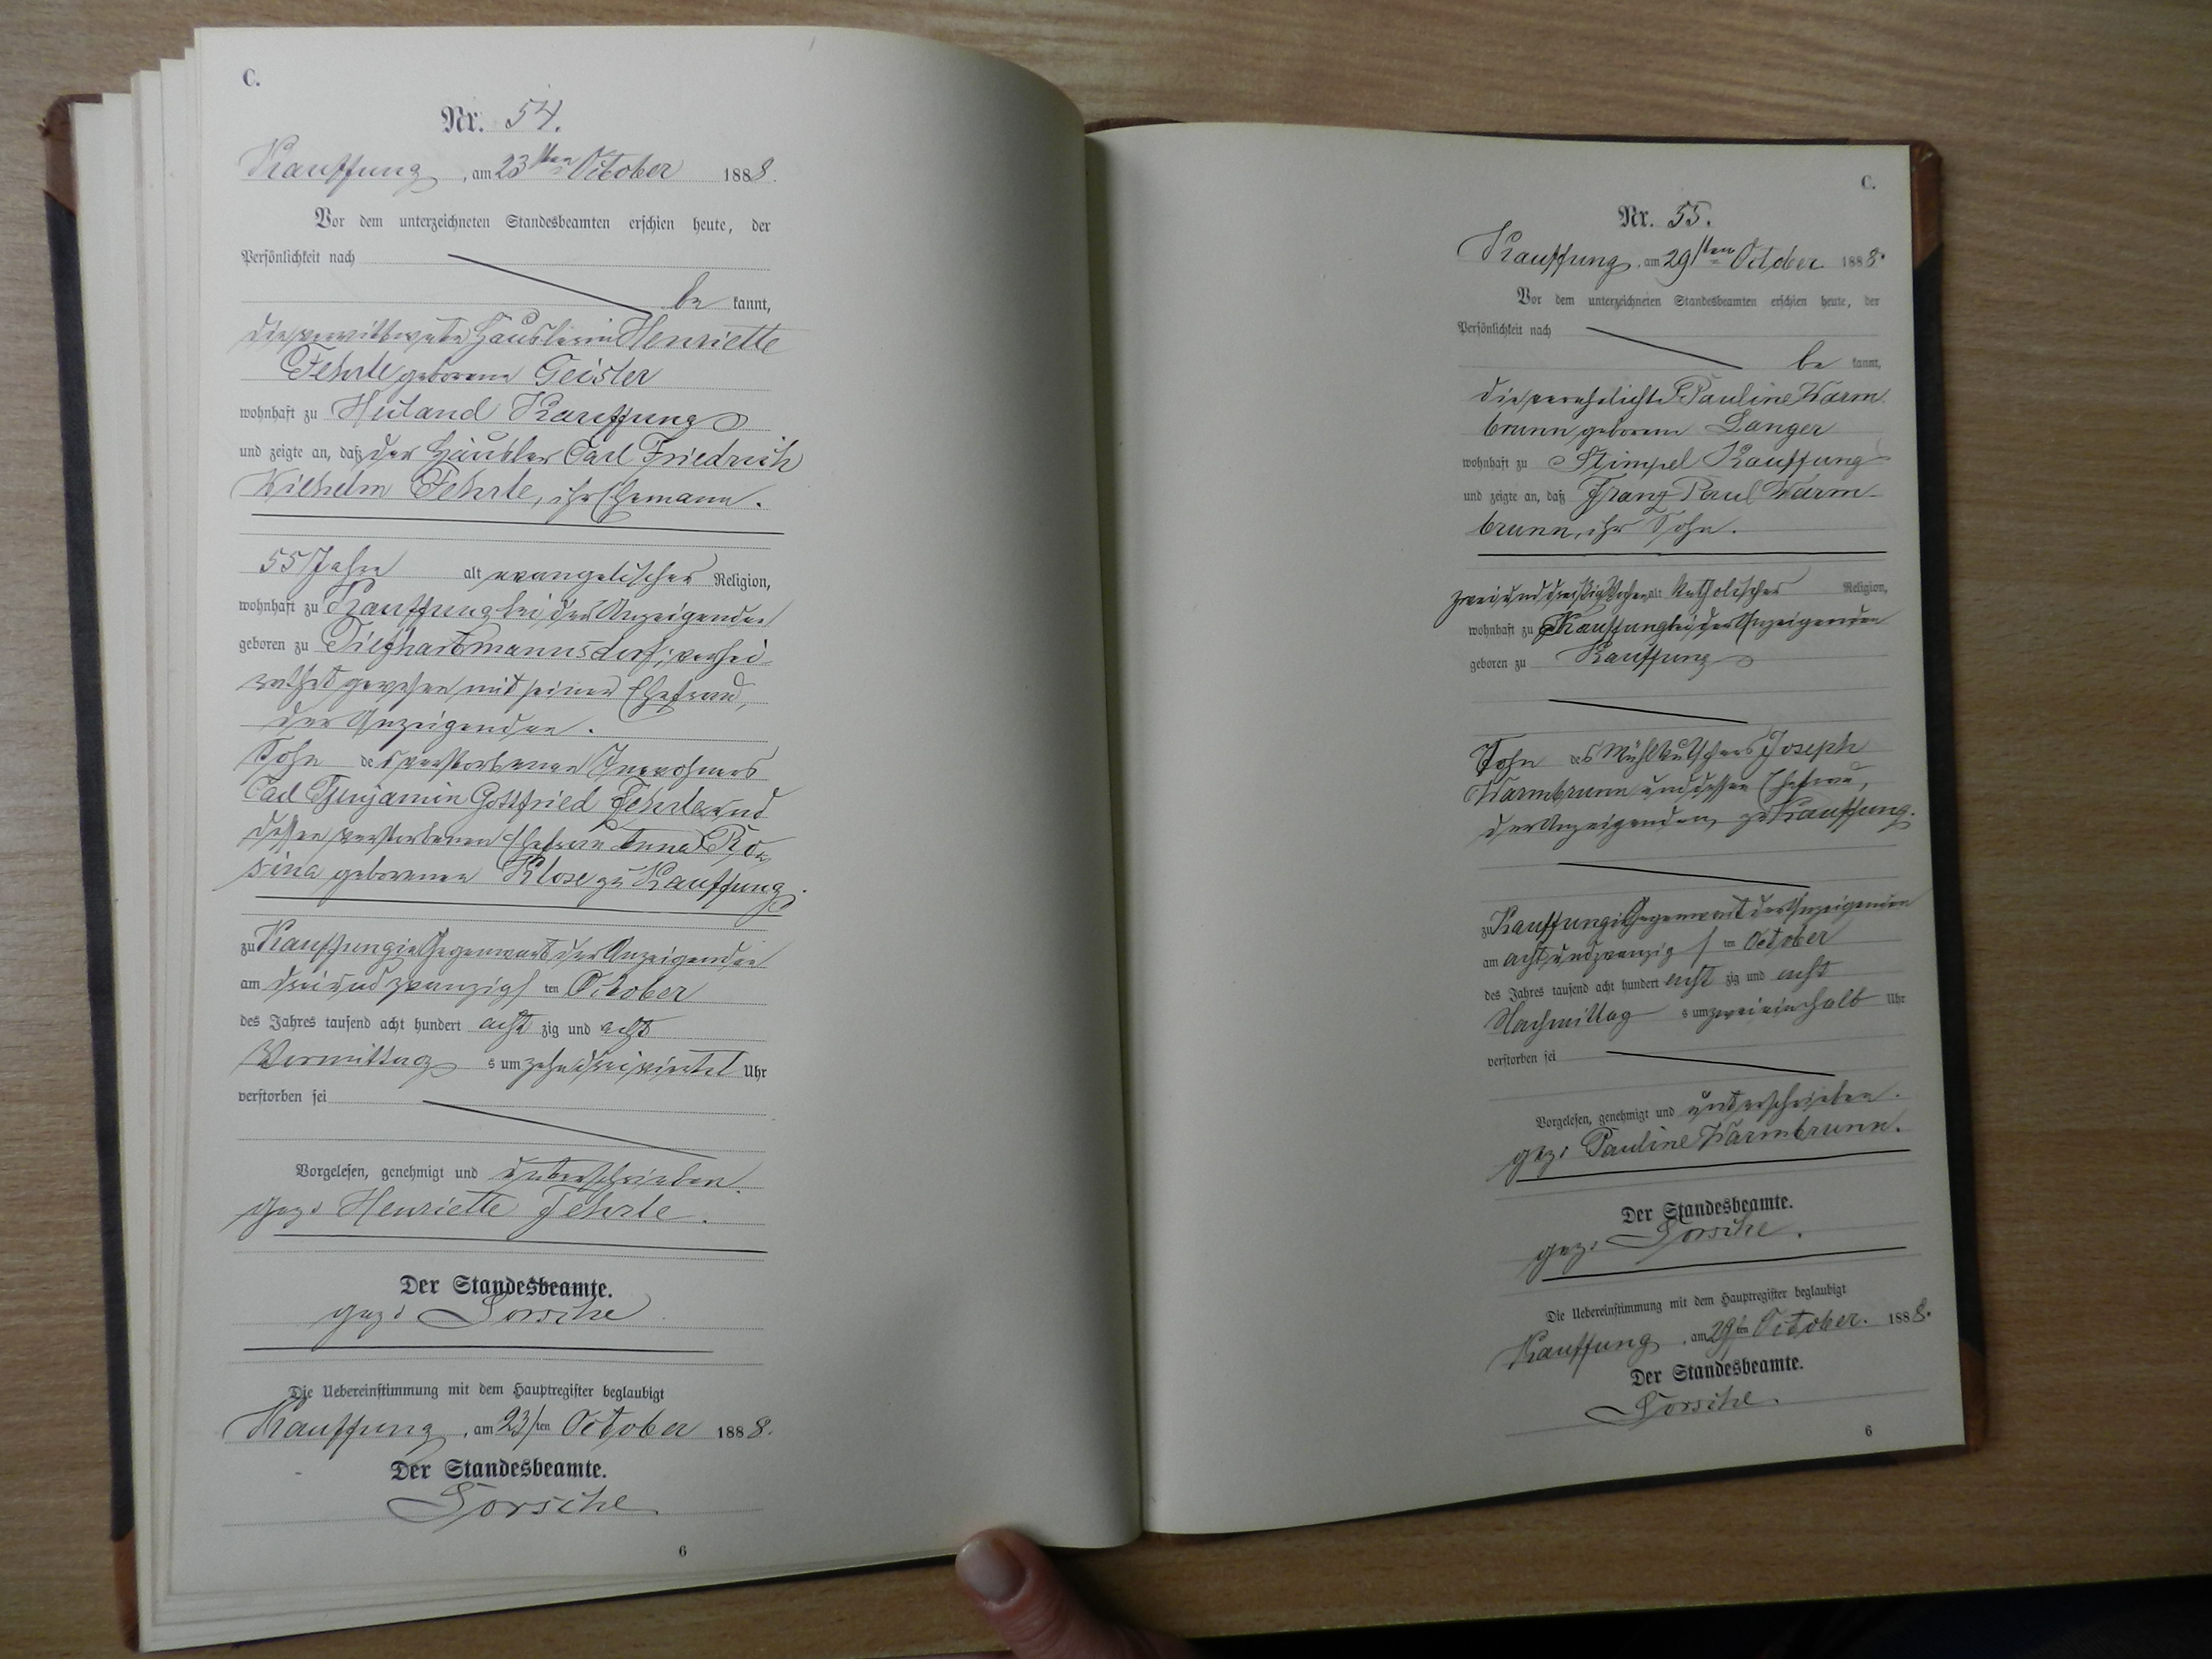 C.
Nr. 54.
Kauffung, am 23sten October 1888.
Vor dem unterzeichneten Standesbeamten erschien heute, der
Persönlichkeit nach
be kannt,
die verwittwete Häuslerin Henriette
Fehrle geborene Geisler
wohnhaft zu Heiland Kauffung
und zeigte an, daß der Häusler Carl Friedrich
Wilhelm Fehrle, ihr Ehemann.
55 Jahre alt evangelischer Religion,
wohnhaft zu Kauffung bei der Anzeigenden
geboren zu Tiefhartmannsdorf, verhei-
rathet gewesen mit seiner Ehefrau,
der Anzeigenden.
Sohn des verstorbenen Inwohners
Carl Benjamin Gottfried Fehrle und
dessen verstorbenen Ehefrau Anna Ro-
sina geborenen Klose zu Kauffung.
zu Kauffung in Gegenwart der Anzeigenden
am dreiundzwanzigsten October
des Jahres tausend acht hundert acht zig und acht
Vormittag s um zehn dreiviertel Uhr
verstorben sei
Vorgelesen, genehmigt und unterschrieben.
gez. Henriette Fehrle.
Der Standesbeamte.
gez. Lorsche
Die Uebereinstimmung mit dem Hauptregister beglaubigt
Kauffung, am 23sten October 1888.
Der Standesbeamte.
Lorsche
6
C.
Nr. 55.
Kauffung, am 29sten October 1888.
Vor dem unterzeichneten Standesbeamten erschien heute, der
Persönlichkeit nach
be kannt,
die verehelichte Pauline Warm-
brunn geborene Langer
wohnhaft zu Stimpel Kauffung
und zeigte an, daß Franz Paul Warm-
brunn, ihr Sohn.
zweiunddreißig Wochen alt katholischer Religion,
wohnhaft zu Kauffung bei der Anzeigenden
geboren zu Kauffung
Sohn des Mühlkutschers Joseph
Warmbrunn und dessen Ehefrau,
der Anzeigenden, zu Kauffung.
zu Kauffung in Gegenwart der Anzeigenden
am achtundzwanzigsten October
des Jahres tausend acht hundert acht zig und acht
Nachmittag s um zweieinhalb Uhr
verstorben sei
Vorgelesen, genehmigt und unterschrieben.
gez. Pauline Warmbrunn.
Der Standesbeamte.
gez. Lorsche.
Die Uebereinstimmung mit dem Hauptregister beglaubigt
Kauffung, am 29sten October. 1888.
Der Standesbeamte.
Lorsche.
6